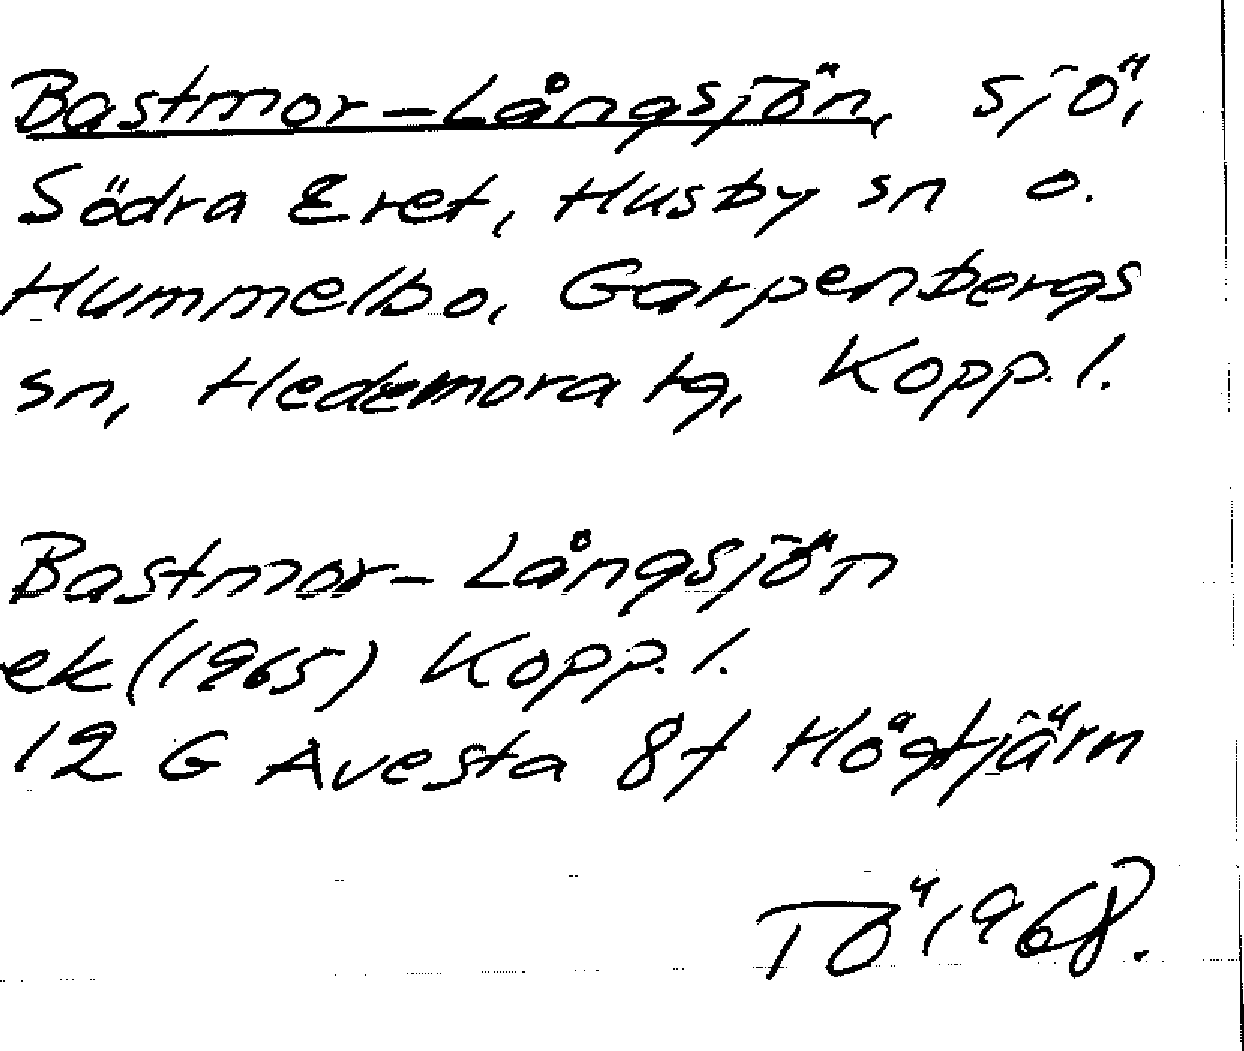 Bastmor-Långsjön, sjö,
Södra Eret, Husby sn o.
Hummelbo, Garpenbergs
sn, Hedemora tg, Kopp.l.
Bastmor-Långsjön
ek (1965) Kopp.l.
12 G Avesta 8f Högtjärn
TÖ 1968.